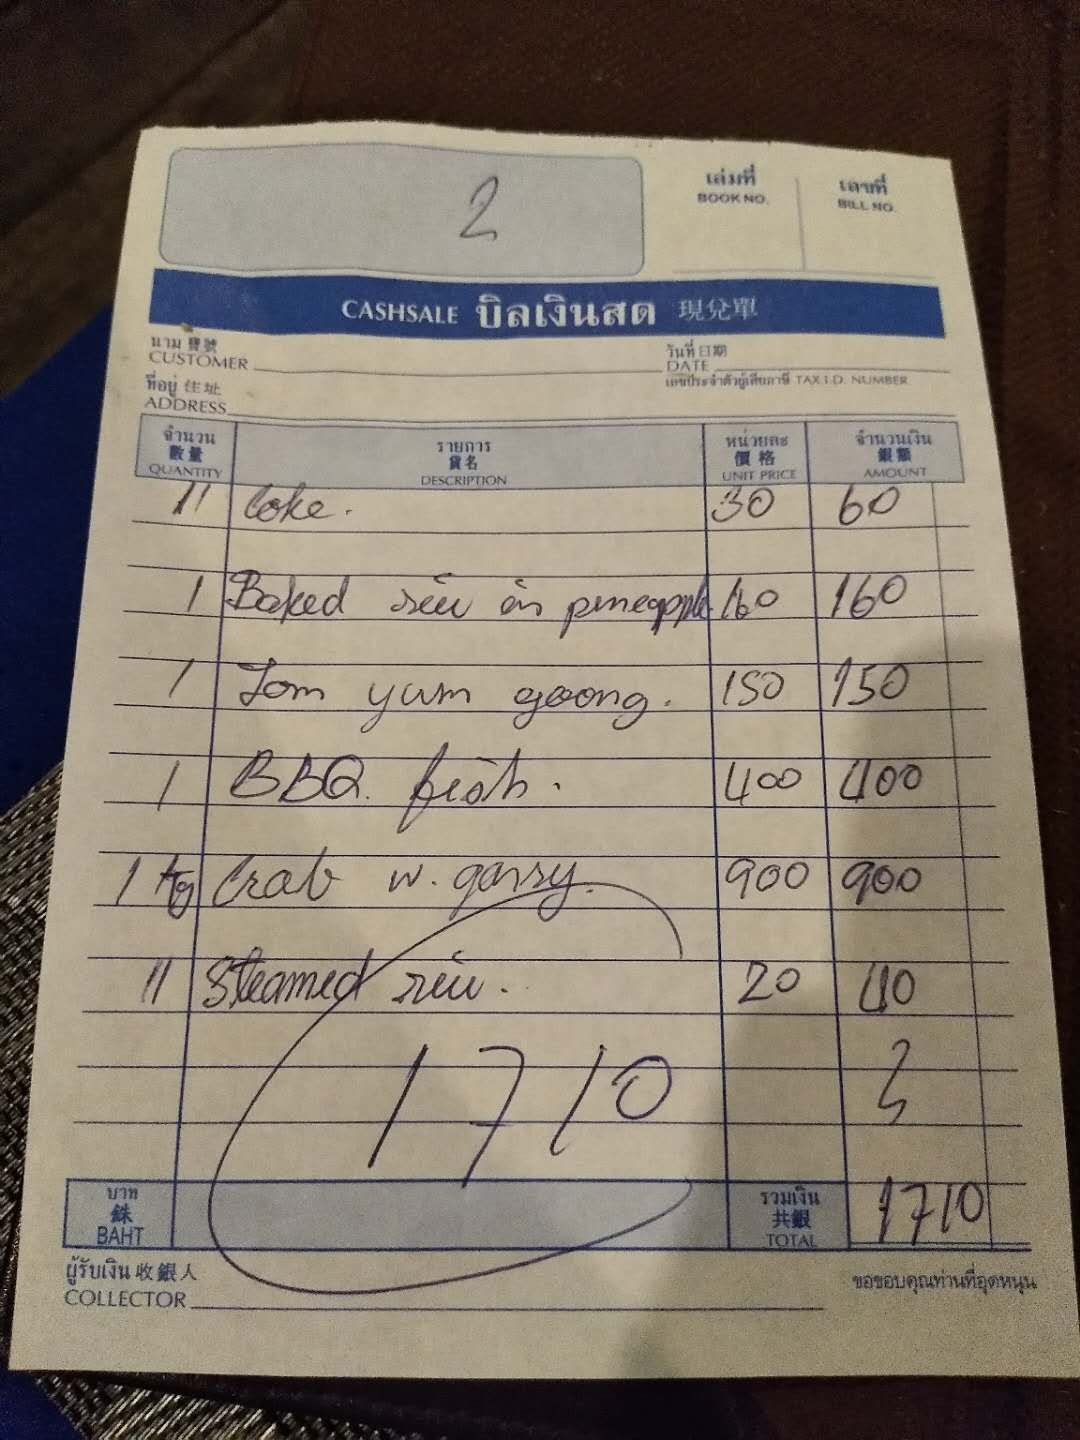 2
เล่มที่ เลขที่
BOOK NO. BILL NO.
CASHSALE บิลเงินสด 現兌單
นาม 寶號
CUSTOMER
วันที่ 日期
DATE
ที่อยู่ 住址
ADDRESS
เลขประจำตัวผู้เสียภาษี TAX I.D. NUMBER
จำนวน รายการ หน่วยละ จำนวนเงิน
數量 貨名 價格 銀額
QUANTITY DESCRIPTION UNIT PRICE AMOUNT
11 Coke. 30 60
1 Baked rice in pineapple 160 160
1 Tom yum goong. 150 150
1 BBQ. fish. 400 400
1 kg Crab w. 900 900
11 Steamed rice. 20 40
1710
บาท รวมเงิน
銖 共銀
BAHT TOTAL 1710
ผู้รับเงิน 收銀人
COLLECTOR
ขอขอบคุณท่านที่อุดหนุน